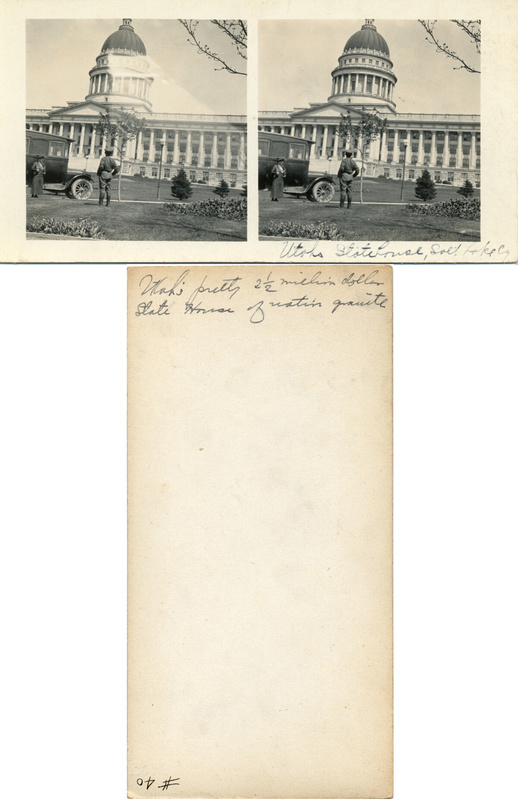 Utahs Statehouse, Salt Lake Cy
Utah's pretty 2½ million dollar
State House of nativ granite
# 40